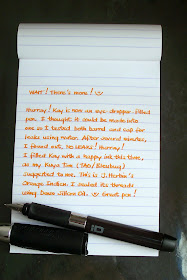 WAIT! There's more!
Hurray! Kay is now an eye-dropper filled
pen. I thought it could be made into
one so I tested both barrel and cap for
leaks using water. After several minutes,
I found out, no leaks! Hurray!
I filled Kay with a happy ink this time,
as my Kuya Tim (TAO/Skeebuy)
suggested to me. This is J. Herbin's
Orange Indien. I sealed its threads
using Dow Silicon Oil. Great pen!